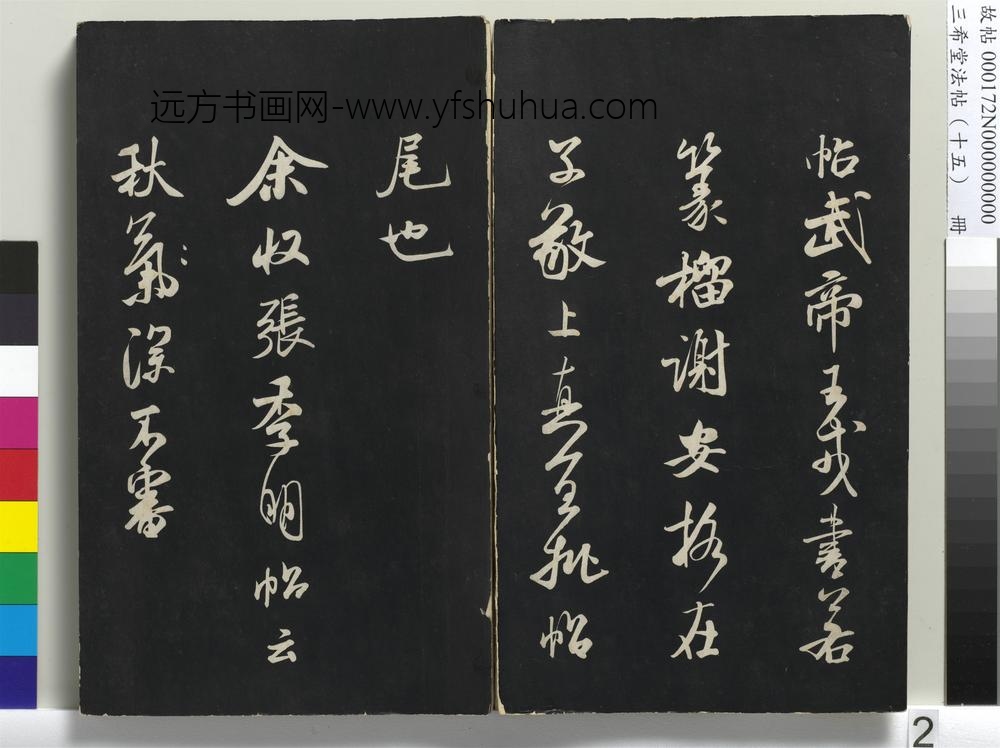 帖武帝王戎書若
篆榴謝安格在
子敬上真宜批帖
尾也
余收張季明帖云
秋氣深不審
远方书画网-www.yfshuhua.com
故帖 000172N000000000
三希堂法帖（十五） 冊
2